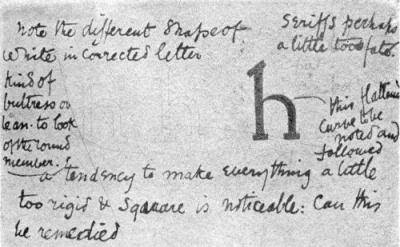 note the different shape of
white in corrected letter
kind of
buttress or
lean-to look
of the round
member.!
seriffs perhaps
a little too fat.
h
this flattened
curve to be
noted and
followed
a tendency to make everything a little
too rigid & square is noticeable: Can this
be remedied